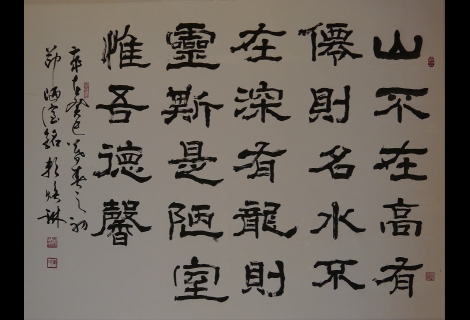 山不在高有
僊則名水不
在深有龍則
靈斯是陋室
惟吾德馨
癸巳春之初
節陋室銘琳